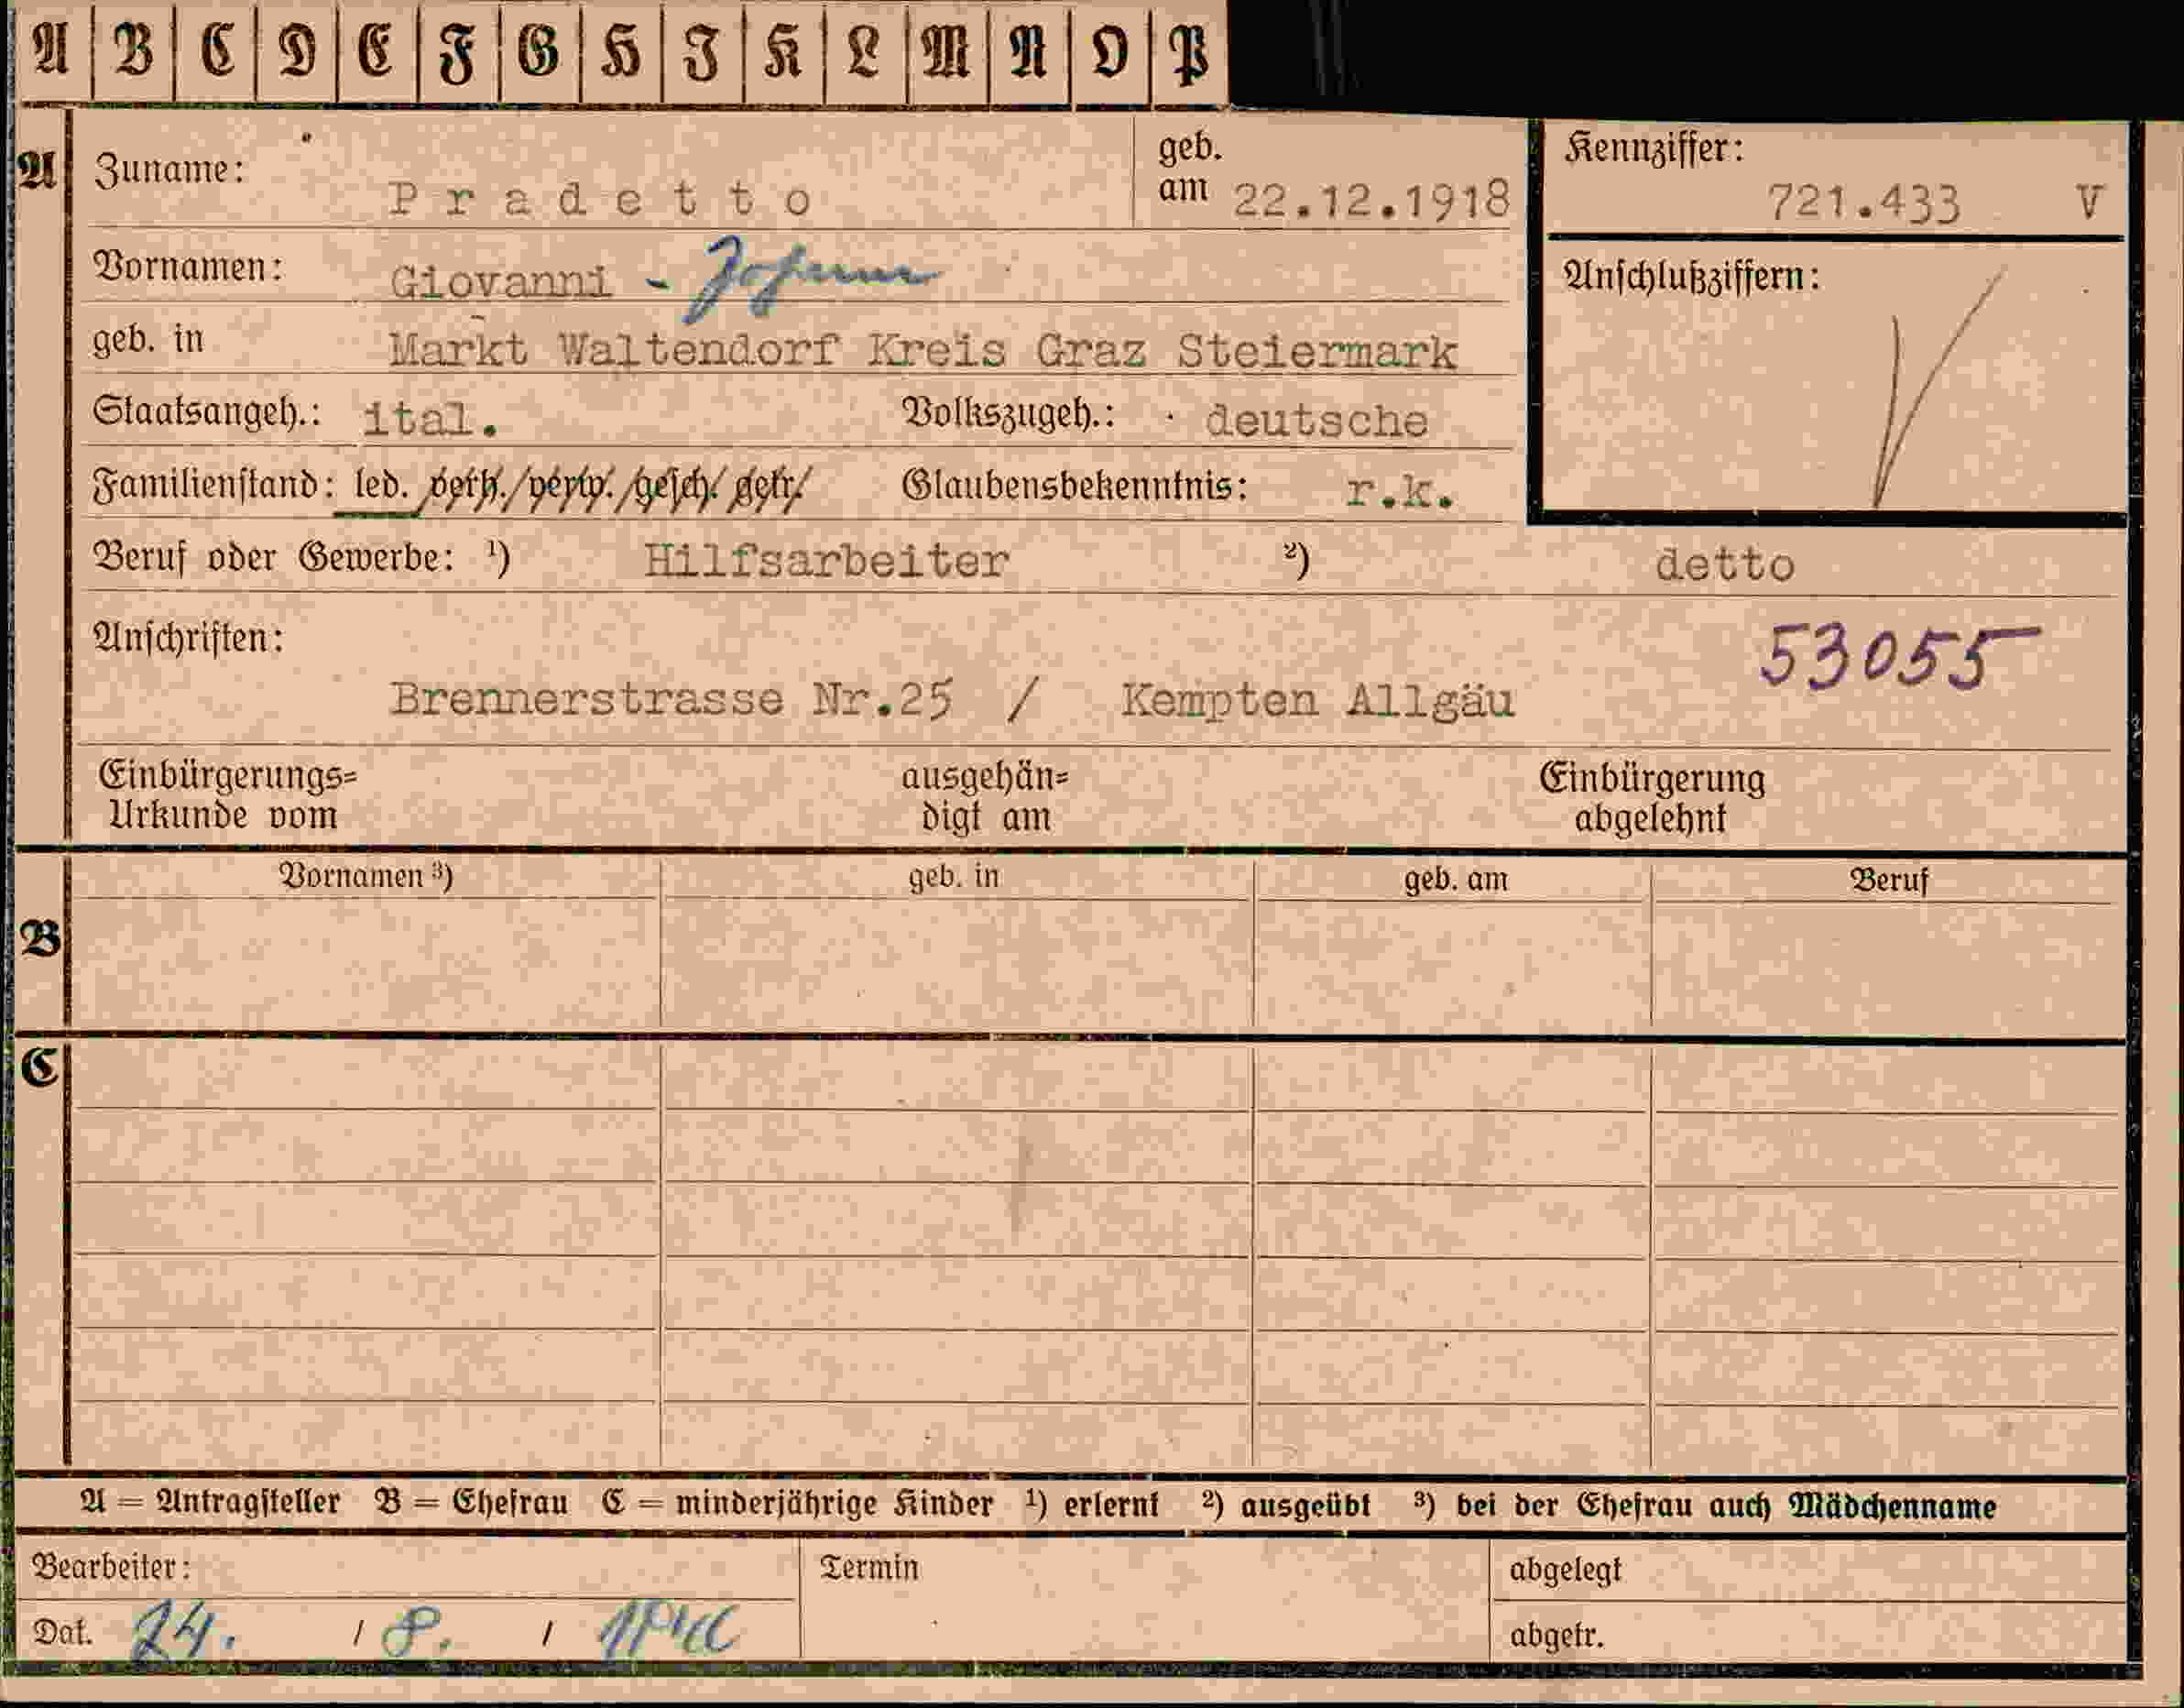 A B C D E F G H I K L M N O P
A Zuname: Pradetto geb. am 22.12.1918 Kennziffer: 721.433 V
Vornamen: Giovanni - Johann
Anschlußziffern:
geb. in Markt Waltendorf Kreis Graz Steiermark
Staatsangeh.: ital. Volkszugeh.: deutsche
Familienstand: led. verh./verw./gesch./getr. Glaubensbekenntnis: r.k.
Beruf oder Gewerbe: ¹) Hilfsarbeiter ²) detto
Anschriften: 53055
Brennerstrasse Nr.25 / Kempten Allgäu
Einbürgerungs= ausgehän= Einbürgerung
Urkunde vom digt am abgelehnt
Vornamen ³) geb. in geb. am Beruf
B
C
A = Antragsteller B = Ehefrau C = minderjährige Kinder ¹) erlernt ²) ausgeübt ³) bei der Ehefrau auch Mädchenname
Bearbeiter: Termin abgelegt
Dat. 24. / 8. / abgetr.